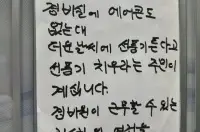 경비실에 에어콘도
없는데
더운날씨에 선풍기튼다고
선풍기 치우라는 주민이
계십니다.
경비원이 근무할 수 있는